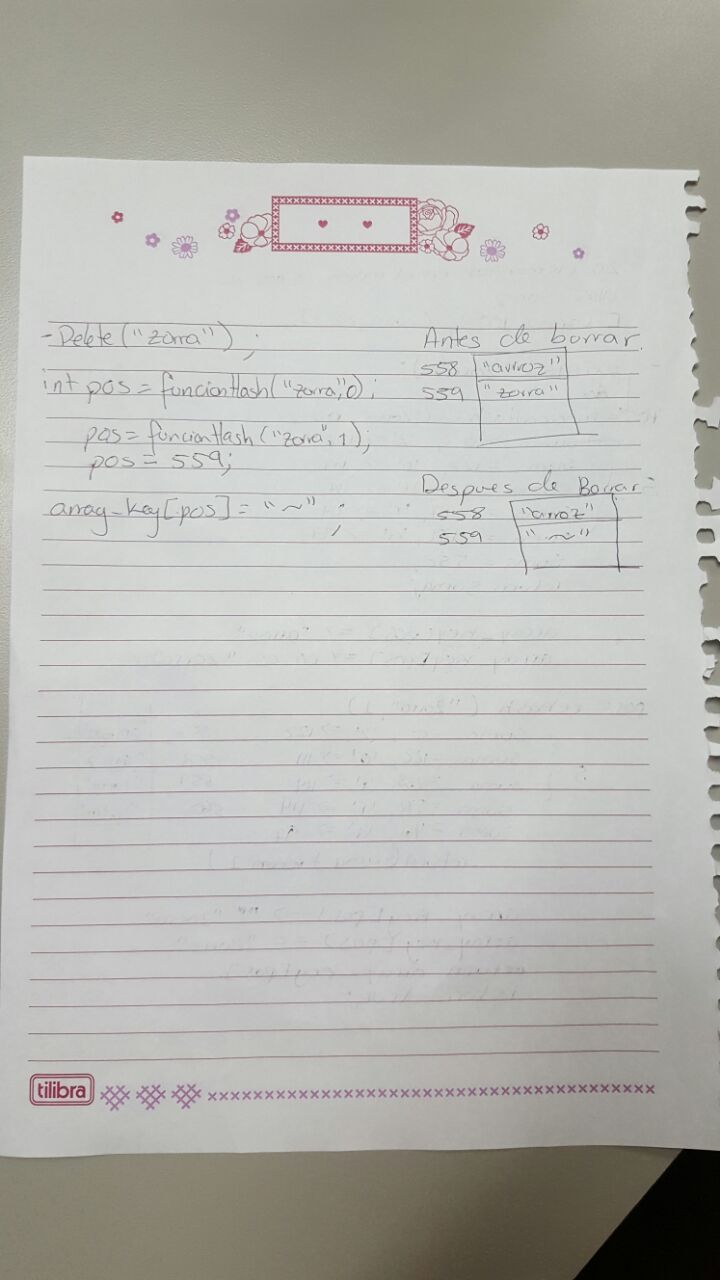 -Delete("zorra");
int pos = funcionHash("zorra",0);
pos = funcionHash("zorra",1);
pos = 559;
array_key[pos] = "~";
Antes de borrar.
558 "arroz"
559 "zorra"
Despues de Borrar
558 "arroz"
559 "~"
tilibra